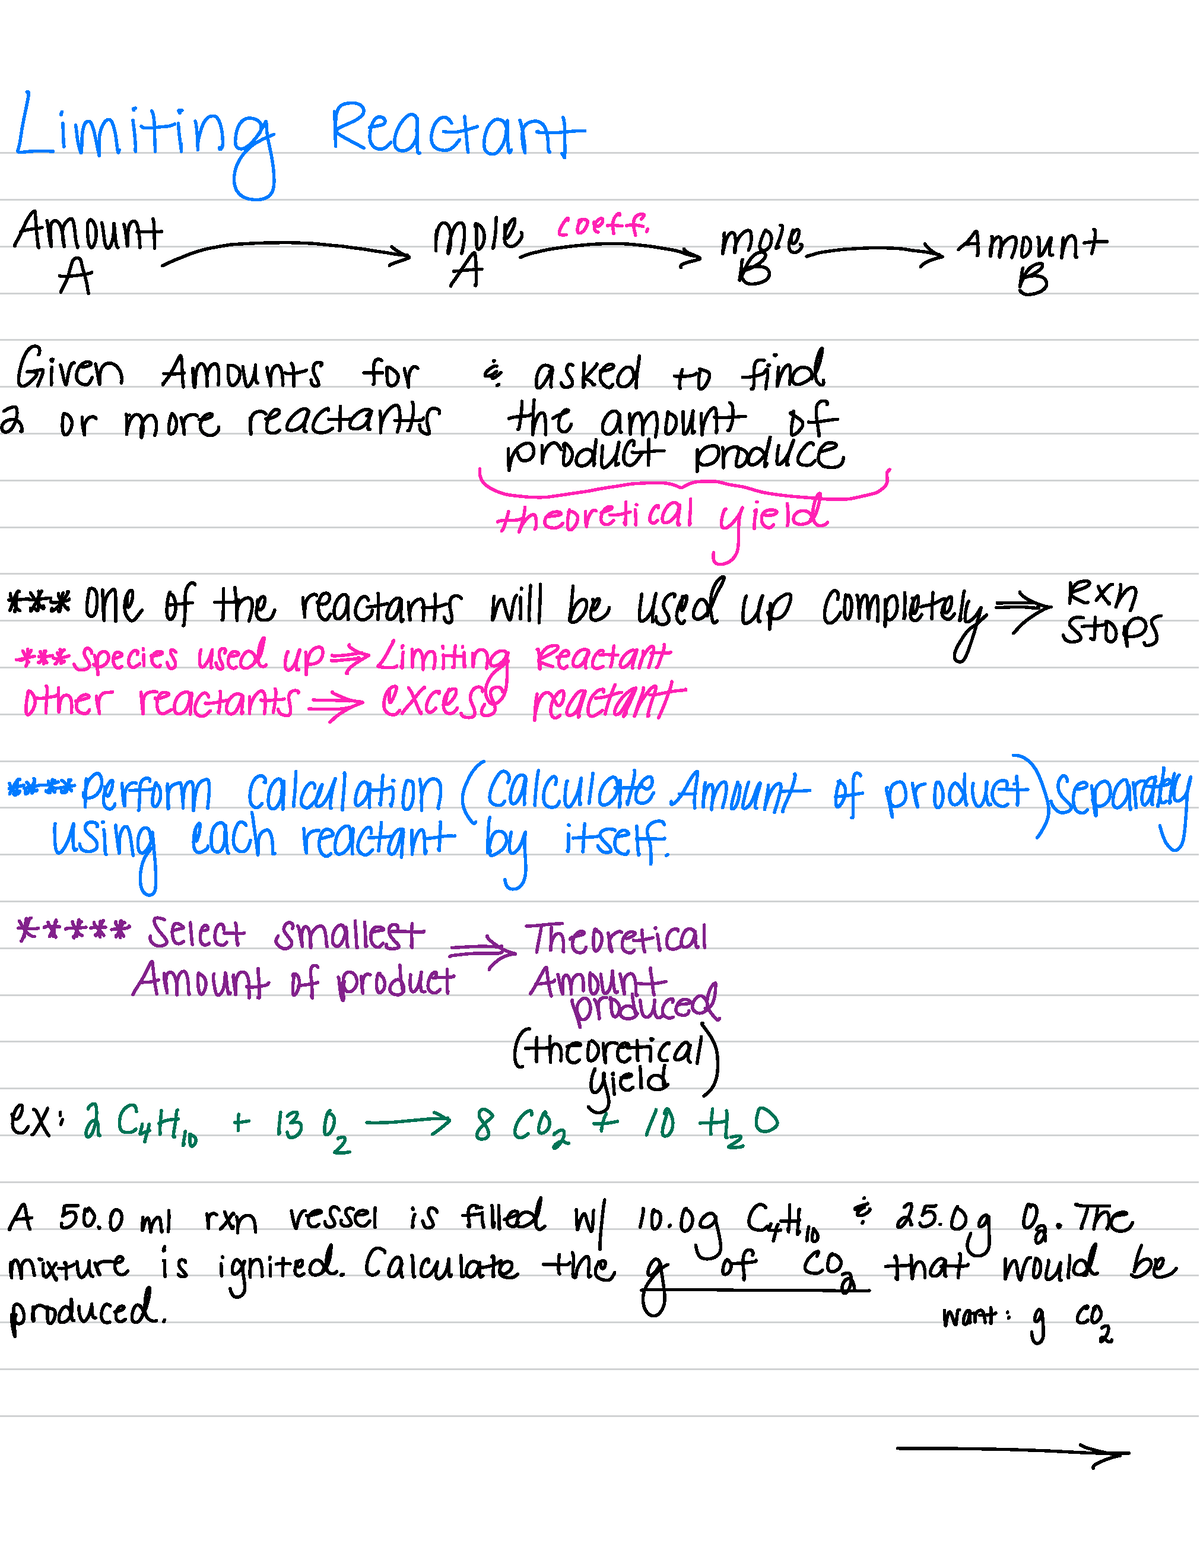 Limiting Reactant
Amount A → mole A coeff. → mole B → Amount B
Given Amounts for & asked to find
2 or more reactants the amount of
product produce
theoretical yield
*** one of the reactants will be used up completely ⇒ Rxn stops
*** species used up ⇒ Limiting Reactant
other reactants ⇒ excess reactant
**** Perform calculation (calculate Amount of product) separately
using each reactant by itself.
***** Select smallest ⇒ Theoretical
Amount of product Amount
produced
(theoretical yield)
ex: 2 C₄H₁₀ + 13 O₂ → 8 CO₂ + 10 H₂O
A 50.0 ml rxn vessel is filled w/ 10.0g C₄H₁₀ & 25.0g O₂. The
mixture is ignited. Calculate the g of CO₂ that would be
produced. want: g CO₂